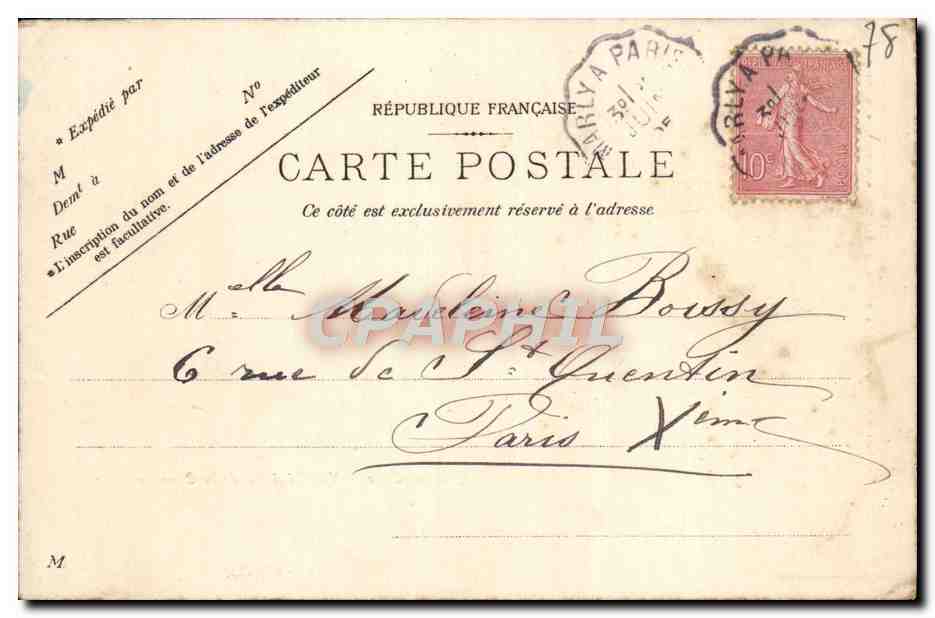 78
MARLY A PARIS
30
MARLY A PA
30
RÉPUBLIQUE FRANÇAISE
10c
* Expédié par
N°
M
Demt à
Rue
* L'inscription du nom et de l'adresse de l'expéditeur
est facultative.
RÉPUBLIQUE FRANÇAISE
CARTE POSTALE
Ce côté est exclusivement réservé à l'adresse
Melle Madeleine Boissy
CPAPHIL
6 rue de St Quentin
Paris Xème
M